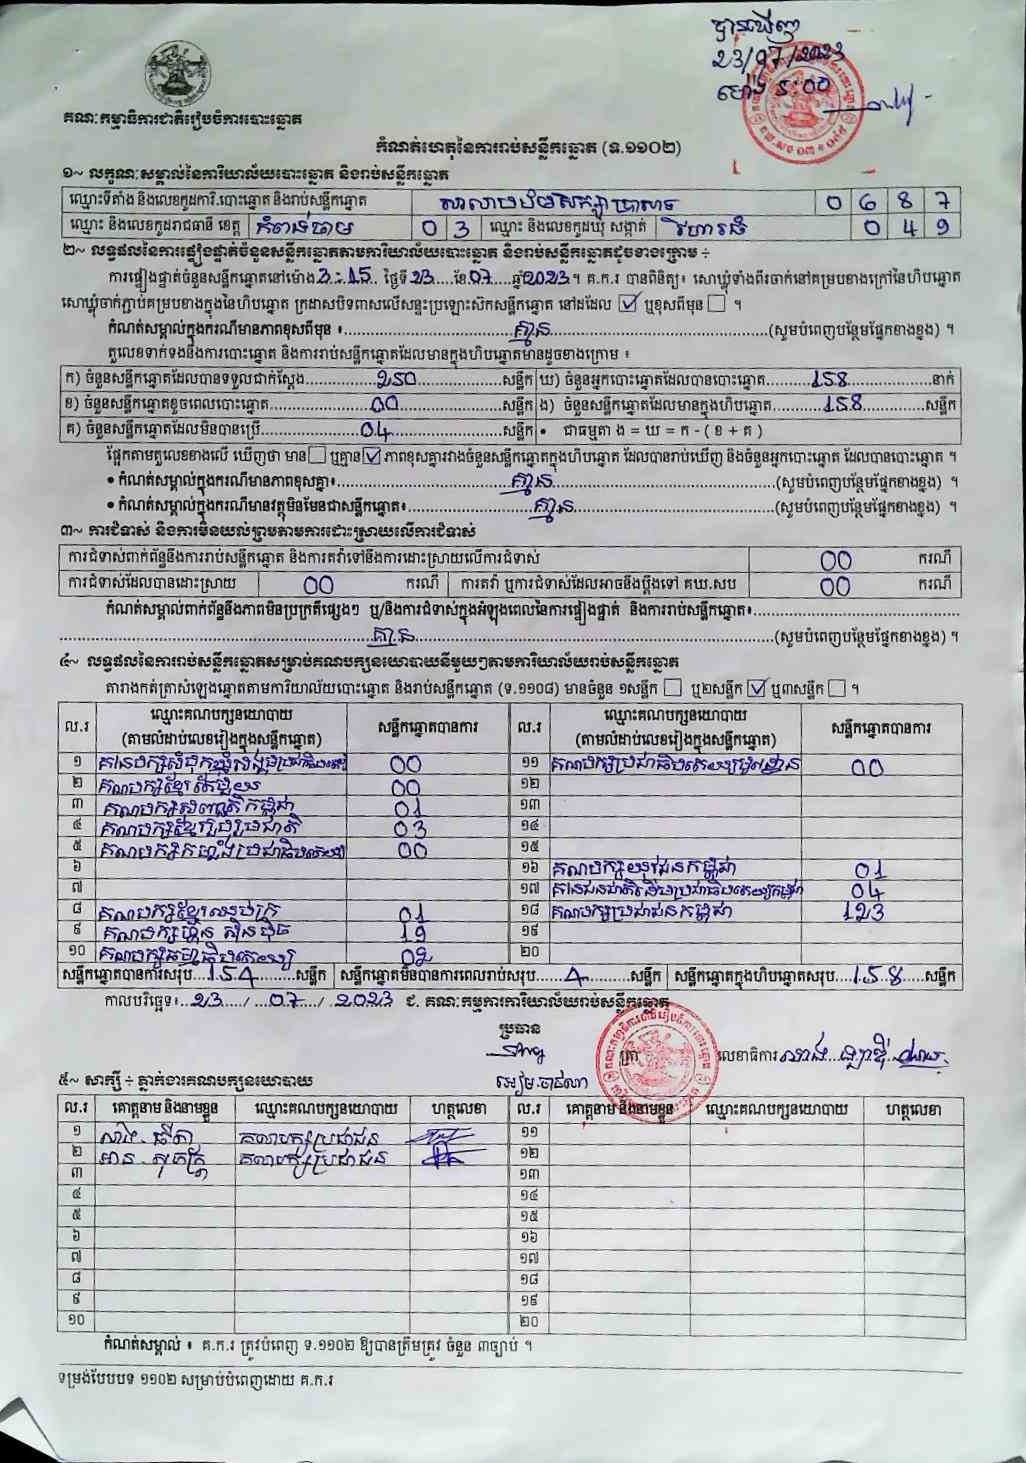 បានឃើញ
23/07/2023
ម៉ោង ៩:00
គណៈកម្មាធិការជាតិរៀបចំការបោះឆ្នោត
កំណត់ហេតុនៃការរាប់សន្លឹកឆ្នោត (ទ.១១០២)
១~ លក្ខណៈសម្គាល់នៃការិយាល័យបោះឆ្នោត និងរាប់សន្លឹកឆ្នោត
ឈ្មោះទីតាំង និងលេខកូដការិ.បោះឆ្នោត និងរាប់សន្លឹកឆ្នោត 0 6 8 7
ឈ្មោះ និងលេខកូដរាជធានី ខេត្ត កំពង់ចាម 0 3 ឈ្មោះ និងលេខកូដឃុំ សង្កាត់ វិហារធំ 0 4 9
២~ លទ្ធផលនៃការផ្ទៀងផ្ទាត់ចំនួនសន្លឹកឆ្នោតតាមការិយាល័យបោះឆ្នោត និងរាប់សន្លឹកឆ្នោតដូចខាងក្រោម ÷
ការផ្ទៀងផ្ទាត់ចំនួនសន្លឹកឆ្នោតនៅម៉ោង 3:15 ថ្ងៃទី 23 ខែ 07 ឆ្នាំ 2023។ គ.ក.រ បានពិនិត្យ៖ សោឃ្លុំទាំងពីរចាក់នៅគម្របខាងក្រៅនៃហិបឆ្នោត
សោឃ្លុំចាក់ភ្ជាប់គម្របខាងក្នុងនៃហិបឆ្នោត ក្រដាសបិទពាសលើសន្ទះប្រឡោះស៊កសន្លឹកឆ្នោត នៅដដែល ☑ ឬខុសពីមុន ☐ ។
កំណត់សម្គាល់ក្នុងករណីមានភាពខុសពីមុន ៖ គ្មាន (សូមបំពេញបន្ថែមផ្នែកខាងខ្នង) ។
តួលេខទាក់ទងនឹងការបោះឆ្នោត និងការរាប់សន្លឹកឆ្នោតដែលមានក្នុងហិបឆ្នោតមានដូចខាងក្រោម ៖
ក) ចំនួនសន្លឹកឆ្នោតដែលបានទទួលជាក់ស្តែង 250 សន្លឹក ឃ) ចំនួនអ្នកបោះឆ្នោតដែលបានបោះឆ្នោត 158 នាក់
ខ) ចំនួនសន្លឹកឆ្នោតខូចពេលបោះឆ្នោត 00 សន្លឹក ង) ចំនួនសន្លឹកឆ្នោតដែលមានក្នុងហិបឆ្នោត 158 សន្លឹក
គ) ចំនួនសន្លឹកឆ្នោតដែលមិនបានប្រើ 04 សន្លឹក • ជាធម្មតា ង = ឃ = ក - ( ខ + គ )
ផ្អែកតាមតួលេខខាងលើ ឃើញថា មាន ☐ ឬគ្មាន ☑ ភាពខុសគ្នារវាងចំនួនសន្លឹកឆ្នោតក្នុងហិបឆ្នោត ដែលបានរាប់ឃើញ និងចំនួនអ្នកបោះឆ្នោត ដែលបានបោះឆ្នោត ។
• កំណត់សម្គាល់ក្នុងករណីមានភាពខុសគ្នា៖ គ្មាន (សូមបំពេញបន្ថែមផ្នែកខាងខ្នង) ។
• កំណត់សម្គាល់ក្នុងករណីមានវត្ថុមិនមែនជាសន្លឹកឆ្នោត៖ គ្មាន (សូមបំពេញបន្ថែមផ្នែកខាងខ្នង) ។
៣~ ការជំទាស់ និងការមិនយល់ព្រមតាមការដោះស្រាយលើការជំទាស់
ការជំទាស់ពាក់ព័ន្ធនឹងការរាប់សន្លឹកឆ្នោត និងការតវ៉ាទៅនឹងការដោះស្រាយលើការជំទាស់ 00 ករណី
ការជំទាស់ដែលបានដោះស្រាយ 00 ករណី ការតវ៉ា ឬការជំទាស់ដែលអាចនឹងប្តឹងទៅ គឃ.សប 00 ករណី
កំណត់សម្គាល់ពាក់ព័ន្ធនឹងភាពមិនប្រក្រតីផ្សេងៗ ឬ/និងការជំទាស់ក្នុងអំឡុងពេលនៃការផ្ទៀងផ្ទាត់ និងការរាប់សន្លឹកឆ្នោត៖
គ្មាន (សូមបំពេញបន្ថែមផ្នែកខាងខ្នង) ។
៤~ លទ្ធផលនៃការរាប់សន្លឹកឆ្នោតសម្រាប់គណបក្សនយោបាយនីមួយៗតាមការិយាល័យរាប់សន្លឹកឆ្នោត
តារាងកត់ត្រាសំឡេងឆ្នោតតាមការិយាល័យបោះឆ្នោត និងរាប់សន្លឹកឆ្នោត (ទ.១១០៨) មានចំនួន ១សន្លឹក ☐ ឬ២សន្លឹក ☑ ឬ៣សន្លឹក ☐ ។
ល.រ ឈ្មោះគណបក្សនយោបាយ (តាមលំដាប់លេខរៀងក្នុងសន្លឹកឆ្នោត) សន្លឹកឆ្នោតបានការ ល.រ ឈ្មោះគណបក្សនយោបាយ (តាមលំដាប់លេខរៀងក្នុងសន្លឹកឆ្នោត) សន្លឹកឆ្នោតបានការ
១ 00 ១១ 00
២ គណបក្សខ្មែរតែមួយ 00 ១២
៣ 01 ១៣
៤ គណបក្សខ្មែររួបរួមជាតិ 03 ១៤
៥ 00 ១៥
៦ ១៦ គណបក្សយុវជនកម្ពុជា 01
៧ ១៧ 04
៨ 01 ១៨ គណបក្សប្រជាជនកម្ពុជា 123
៩ គណបក្សហ៊្វុនស៊ិនប៉ិច 19 ១៩
១០ គណបក្សធម្មាធិបតេយ្យ 02 ២០
សន្លឹកឆ្នោតបានការសរុប 154 សន្លឹក សន្លឹកឆ្នោតមិនបានការពេលរាប់សរុប 4 សន្លឹក សន្លឹកឆ្នោតក្នុងហិបឆ្នោតសរុប 158 សន្លឹក
កាលបរិច្ឆេទ៖ 23 / 07 / 2023 ជ. គណៈកម្មការការិយាល័យរាប់សន្លឹកឆ្នោត
ប្រធាន
ត្រា លេខាធិការ
៥~ សាក្សី ÷ ភ្នាក់ងារគណបក្សនយោបាយ
ល.រ គោត្តនាម និងនាមខ្លួន ឈ្មោះគណបក្សនយោបាយ ហត្ថលេខា ល.រ គោត្តនាម និងនាមខ្លួន ឈ្មោះគណបក្សនយោបាយ ហត្ថលេខា
១ គណបក្សប្រជាជន ១១
២ គណបក្សប្រជាជន ១២
៣ ១៣
៤ ១៤
៥ ១៥
៦ ១៦
៧ ១៧
៨ ១៨
៩ ១៩
១០ ២០
កំណត់សម្គាល់ ៖ គ.ក.រ ត្រូវបំពេញ ទ.១១០២ ឱ្យបានត្រឹមត្រូវ ចំនួន ៣ច្បាប់ ។
ទម្រង់បែបបទ ១១០២ សម្រាប់បំពេញដោយ គ.ក.រ